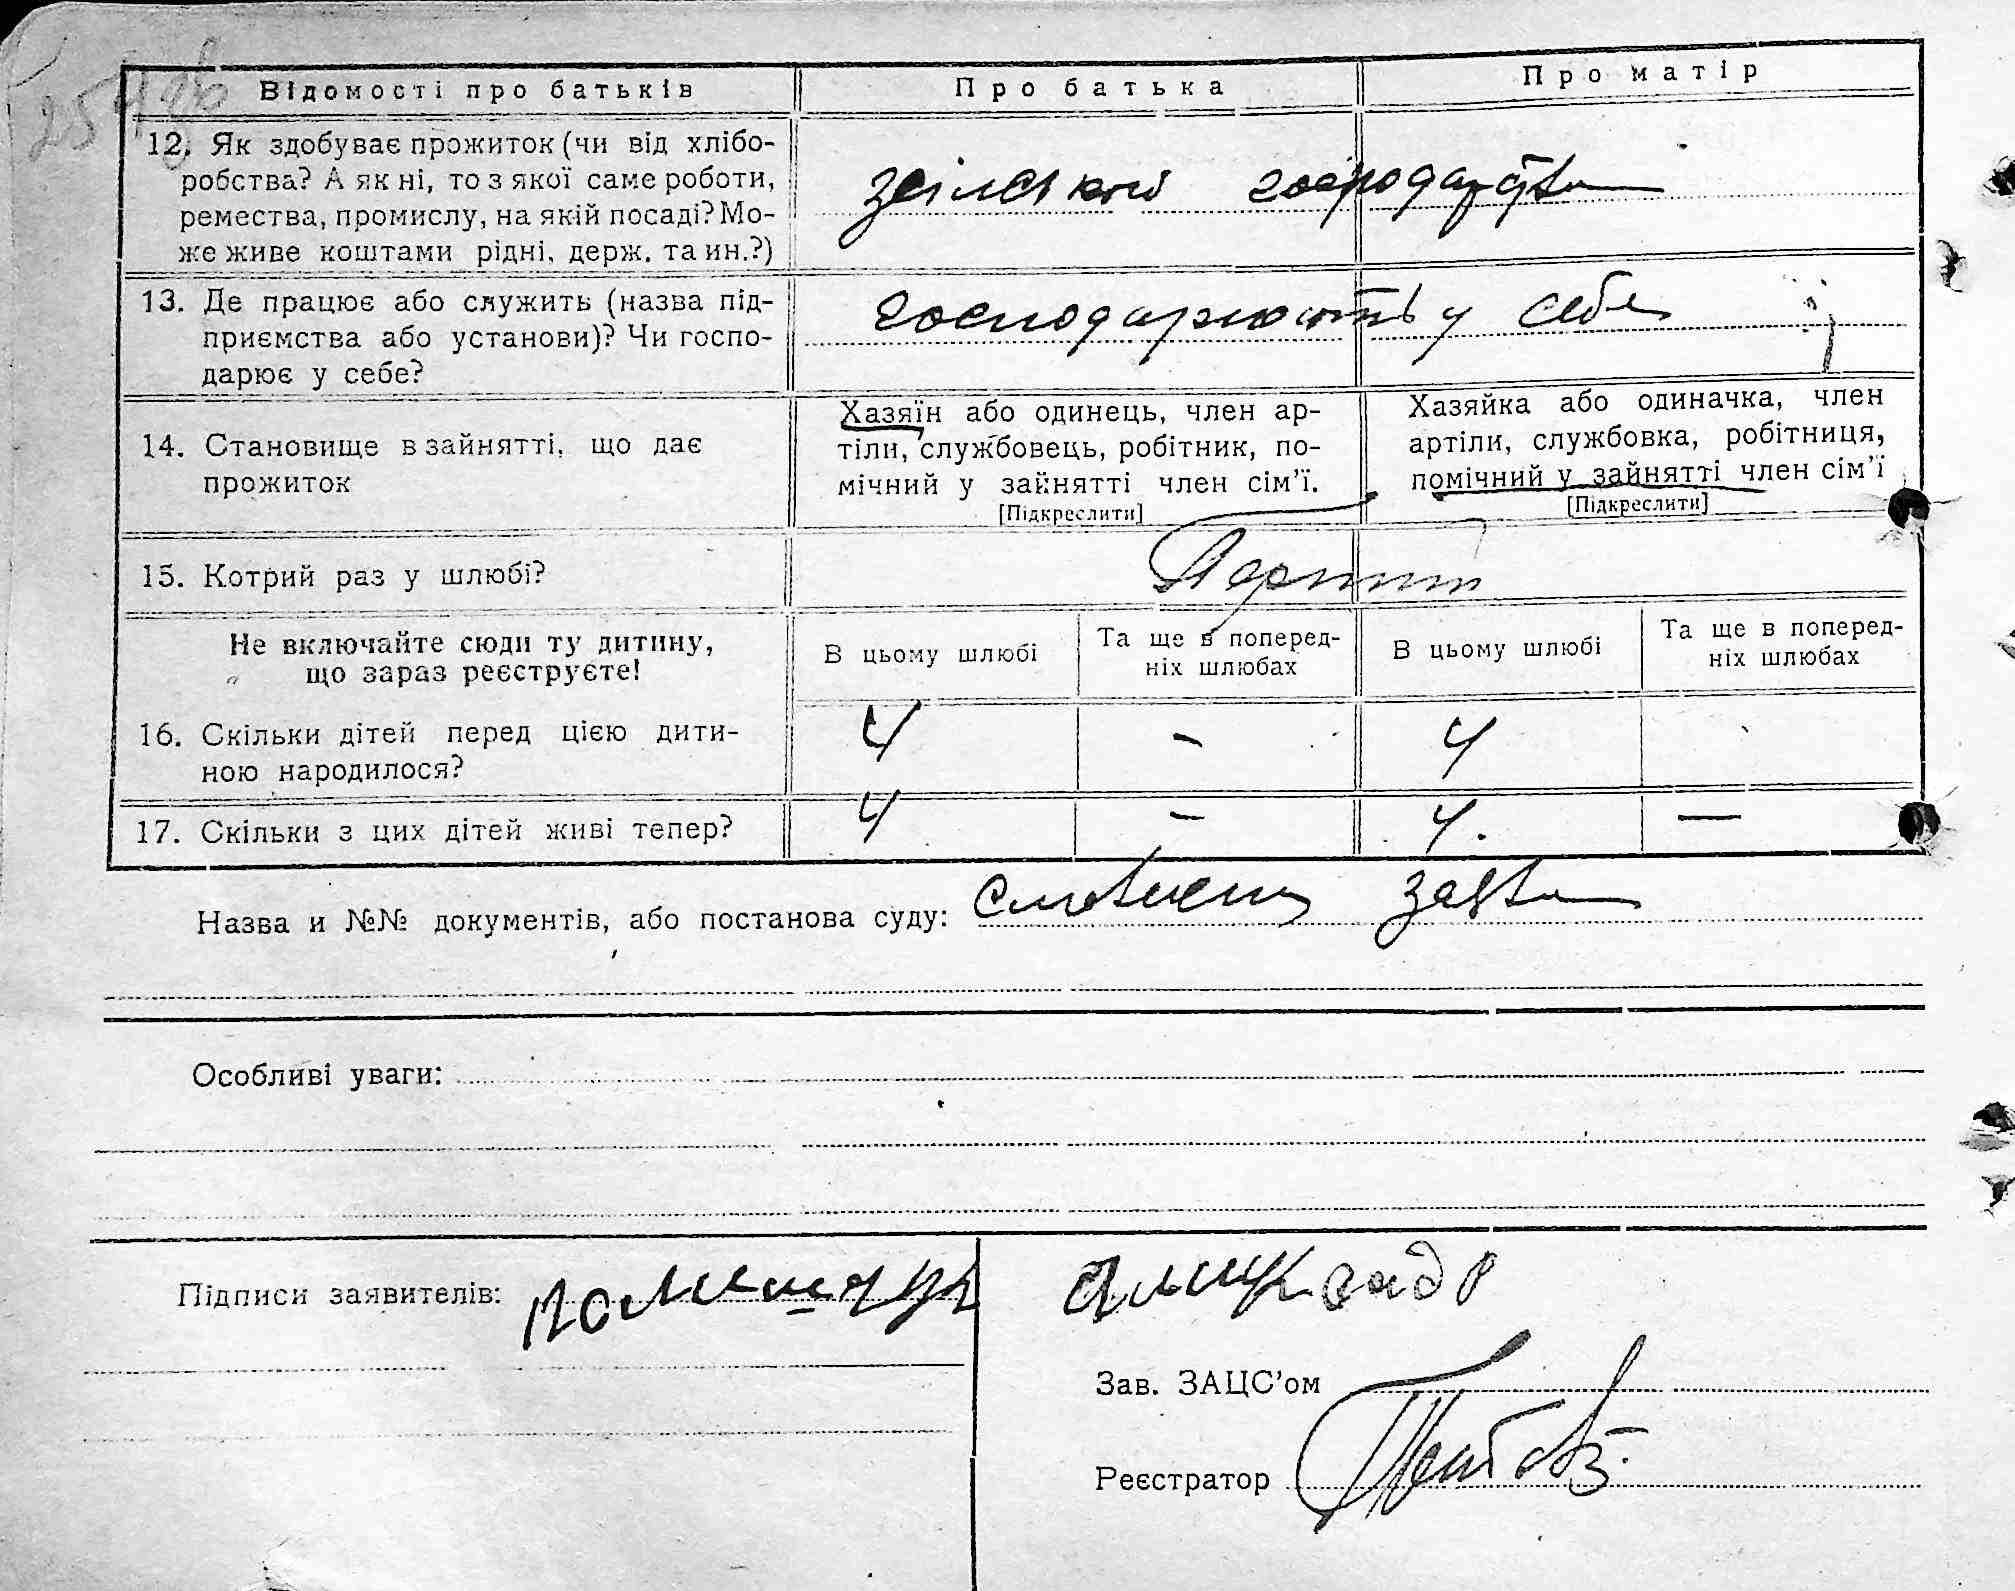 Відомості про батьків
Про батька
Про матір
12. Як здобуває прожиток (чи від хлібо-
робства? А як ні, то з якої саме роботи,
ремества, промислу, на якій посаді? Мо-
же живе коштами рідні, держ. та ин.?)
господарства
13. Де працює або служить (назва під-
приємства або установи)? Чи госпо-
дарює у себе?
господарюють у себе
14. Становище в зайнятті, що дає
прожиток
Хазяїн або одинець, член ар-
тіли, службовець, робітник, по-
мічний у зайнятті член сім'ї.
[Підкреслити]
Хазяйка або одиначка, член
артіли, службовка, робітниця,
помічний у зайнятті член сім'ї
[Підкреслити]
15. Котрий раз у шлюбі?
Не включайте сюди ту дитину,
що зараз реєструєте!
В цьому шлюбі
Та ще в поперед-
ніх шлюбах
В цьому шлюбі
Та ще в поперед-
ніх шлюбах
16. Скільки дітей перед цією дити-
ною народилося?
4 - 4
17. Скільки з цих дітей живі тепер?
4 - 4. —
Назва и №№ документів, або постанова суду: Словесна заява
Особливі уваги:
Підписи заявителів:
Зав. ЗАЦС'ом
Реєстратор